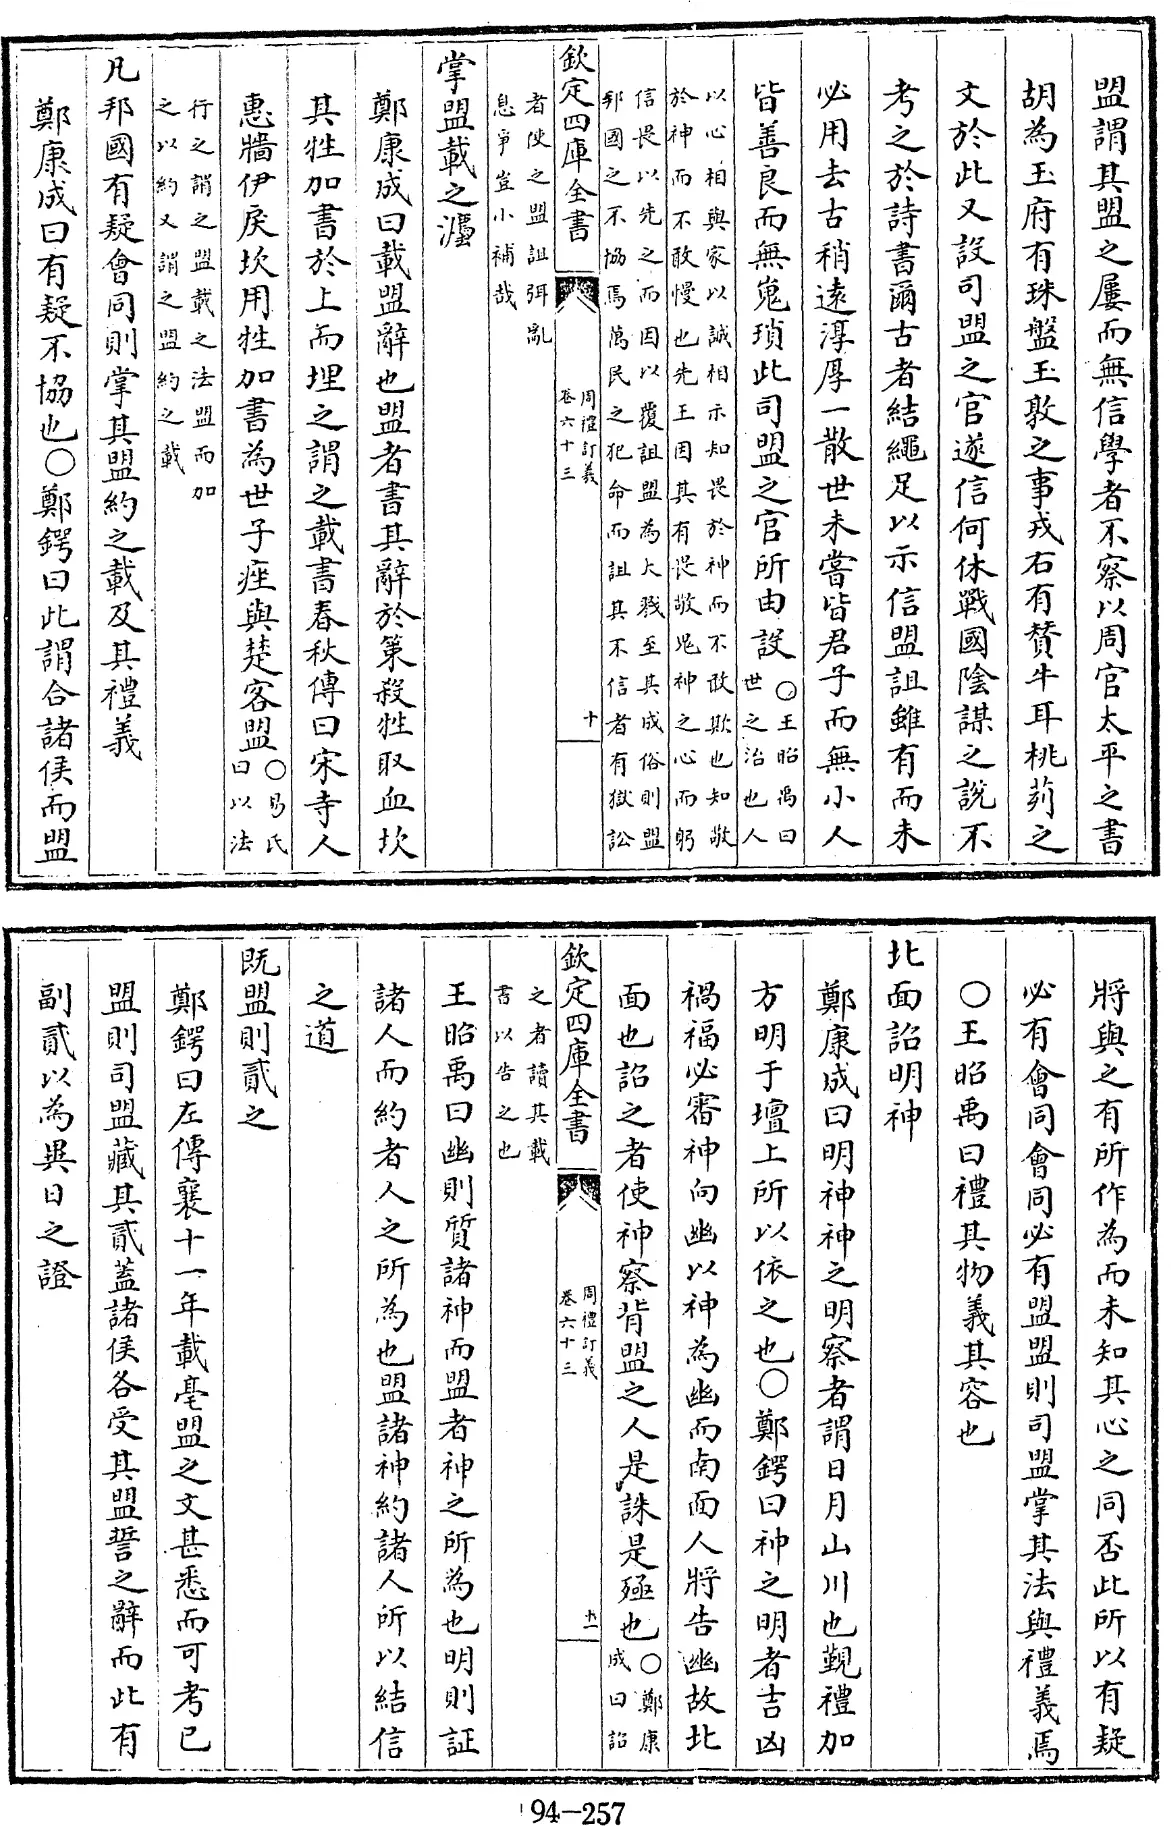 盟謂其盟之屢而無信學者不察以周官太平之書
胡為玉府有珠盤玉敦之事戎右有贊牛耳桃茢之
文於此又設司盟之官遂信何休戰國陰謀之說不
考之於詩書爾古者結繩足以示信盟詛雖有而未
必用去古稍遠淳厚一散世未嘗皆君子而無小人
皆善良而無嵬瑣此司盟之官所由設○王昭禹曰
世之治也人
以心相與家以誠相示知畏於神而不敢欺也知敬
於神而不敢慢也先王因其有畏敬鬼神之心而躬
信畏以先之而因以覆詛盟為大戮至其成俗則盟
邦國之不協焉萬民之犯命而詛其不信者有獄訟
欽定四庫全書
周禮訂義
卷六十三
十
者使之盟詛弭亂
息爭豈小補哉
掌盟載之灋
鄭康成曰載盟辭也盟者書其辭於策殺牲取血坎
其牲加書於上而埋之謂之載書春秋傳曰宋寺人
惠牆伊戾坎用牲加書為世子痤與楚客盟○易氏
曰以法
行之謂之盟載之法盟而加
之以約又謂之盟約之載
凡邦國有疑會同則掌其盟約之載及其禮義
鄭康成曰有疑不協也○鄭鍔曰此謂合諸侯而盟
將與之有所作為而未知其心之同否此所以有疑
必有會同會同必有盟盟則司盟掌其法與禮義焉
○王昭禹曰禮其物義其容也
北面詔明神
鄭康成曰明神神之明察者謂日月山川也覲禮加
方明于壇上所以依之也○鄭鍔曰神之明者吉凶
禍福必審神向幽以神為幽而南面人將告幽故北
面也詔之者使神察背盟之人是誅是殛也○鄭康
成曰詔
欽定四庫全書
周禮訂義
卷六十三
十一
之者讀其載
書以告之也
王昭禹曰幽則質諸神而盟者神之所為也明則証
諸人而約者人之所為也盟諸神約諸人所以結信
之道
既盟則貳之
鄭鍔曰左傳襄十一年載亳盟之文甚悉而可考已
盟則司盟藏其貳蓋諸侯各受其盟誓之辭而此有
副貳以為異日之證
94-257